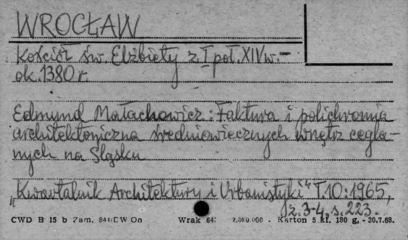 WROCŁAW
Kościół św. Elżbiety z I poł. XIV w. -
ok. 1380 r.
Edmund Małachowicz: Faktura i polichromia
architektoniczna średniowiecznych wnętrz cegla-
nych na Śląsku
„Kwartalnik Architektury i Urbanistyki" T. 10: 1965,
z. 3-4, s. 223.
CWD B 15 b Zam. EW On Wrak 64: Karton 5 kl. 180 g. - 20.7.68.